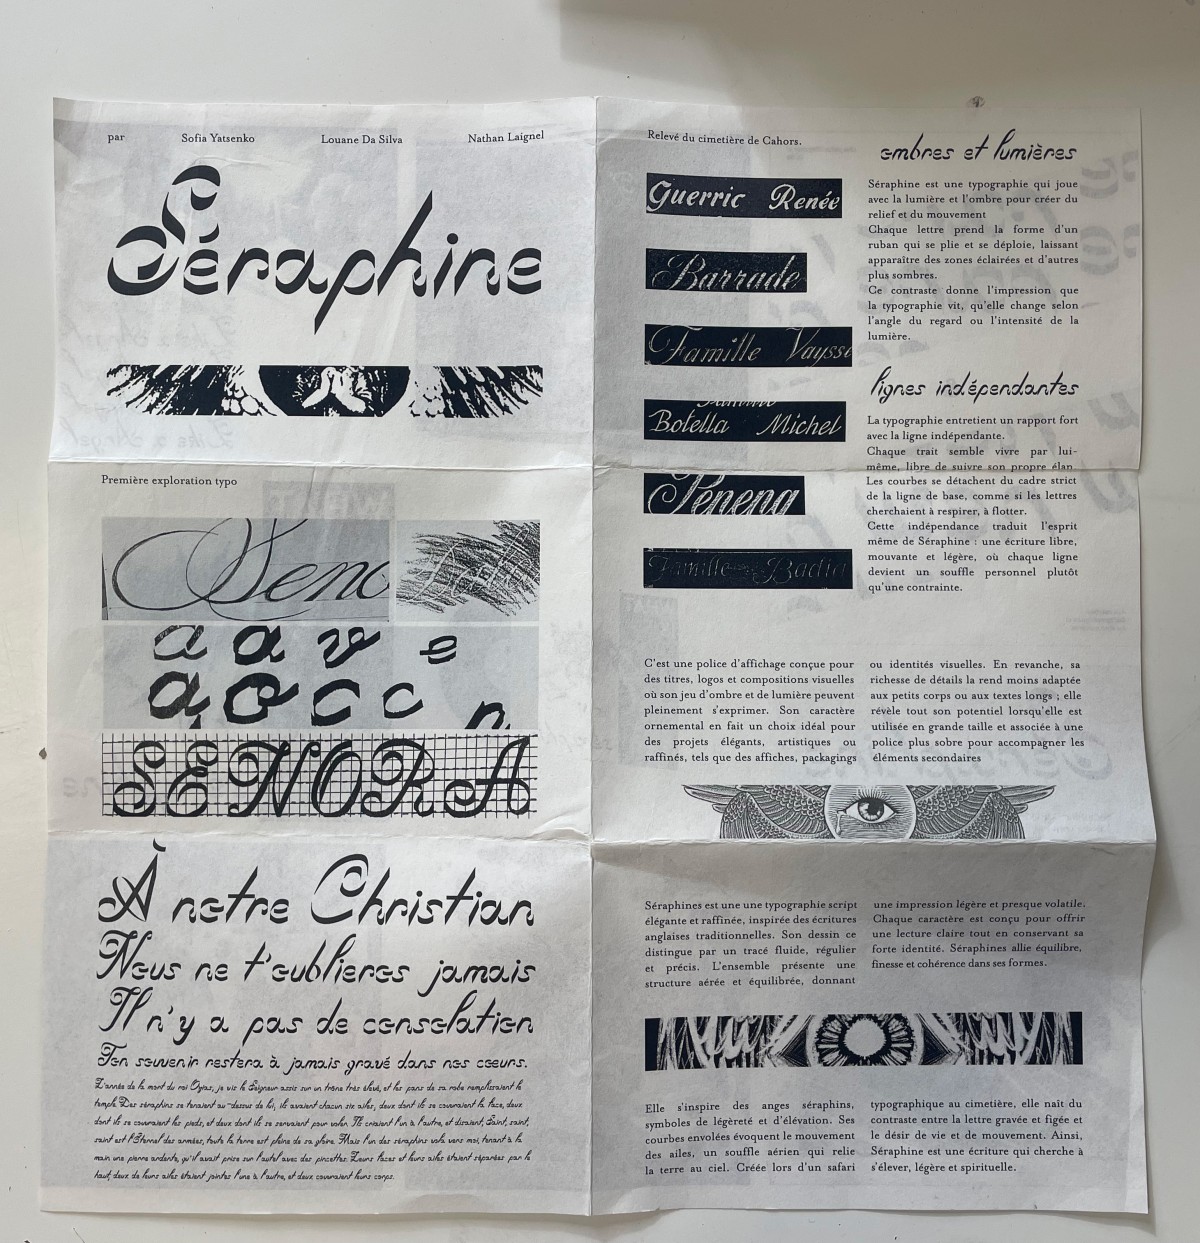 par Sofia Yatsenko Louane Da Silva Nathan Laignel
Séraphine
Première exploration typo
Seno
a a v e
a o c c n
SENORA
À notre Christian
Nous ne t'oublieros jamais
Il n'y a pas de consolation
Ton souvenir restera à jamais gravé dans nos cœurs.
L'année de la mort du roi Ozias, je vis le Seigneur assis sur un trône très élevé, et les pans de sa robe remplissaient le
temple. Des séraphins se tenaient au-dessus de lui, ils avaient chacun six ailes, deux dont ils se couvraient la face, deux
dont ils se couvraient les pieds, et deux dont ils se servaient pour voler. Ils criaient l'un à l'autre, et disaient, Saint, saint,
saint est l'Éternel des armées, toute la terre est pleine de sa gloire. Mais l'un des séraphins vola vers moi, tenant à la
main une pierre ardente, qu'il avait prise sur l'autel avec des pincettes. Leurs faces et leurs ailes étaient séparées par le
haut, deux de leurs ailes étaient jointes l'une à l'autre, et deux couvraient leurs corps.
Relevé du cimetière de Cahors.
Guerric Renée
Barrade
Famille Vayss
Botella Michel
Peneng
Famille Badia
ombres et lumières
Séraphine est une typographie qui joue
avec la lumière et l'ombre pour créer du
relief et du mouvement
Chaque lettre prend la forme d'un
ruban qui se plie et se déploie, laissant
apparaître des zones éclairées et d'autres
plus sombres.
Ce contraste donne l'impression que
la typographie vit, qu'elle change selon
l'angle du regard ou l'intensité de la
lumière.
lignes indépendantes
La typographie entretient un rapport fort
avec la ligne indépendante.
Chaque trait semble vivre par lui-
même, libre de suivre son propre élan.
Les courbes se détachent du cadre strict
de la ligne de base, comme si les lettres
cherchaient à respirer, à flotter.
Cette indépendance traduit l'esprit
même de Séraphine : une écriture libre,
mouvante et légère, où chaque ligne
devient un souffle personnel plutôt
qu'une contrainte.
C'est une police d'affichage conçue pour
des titres, logos et compositions visuelles
où son jeu d'ombre et de lumière peuvent
pleinement s'exprimer. Son caractère
ornemental en fait un choix idéal pour
des projets élégants, artistiques ou
raffinés, tels que des affiches, packagings
ou identités visuelles. En revanche, sa
richesse de détails la rend moins adaptée
aux petits corps ou aux textes longs ; elle
révèle tout son potentiel lorsqu'elle est
utilisée en grande taille et associée à une
police plus sobre pour accompagner les
éléments secondaires
Séraphines est une une typographie script
élégante et raffinée, inspirée des écritures
anglaises traditionnelles. Son dessin ce
distingue par un tracé fluide, régulier
et précis. L'ensemble présente une
structure aérée et équilibrée, donnant
une impression légère et presque volatile.
Chaque caractère est conçu pour offrir
une lecture claire tout en conservant sa
forte identité. Séraphines allie équilibre,
finesse et cohérence dans ses formes.
Elle s'inspire des anges séraphins,
symboles de légèreté et d'élévation. Ses
courbes envolées évoquent le mouvement
des ailes, un souffle aérien qui relie
la terre au ciel. Créée lors d'un safari
typographique au cimetière, elle naît du
contraste entre la lettre gravée et figée et
le désir de vie et de mouvement. Ainsi,
Séraphine est une écriture qui cherche à
s'élever, légère et spirituelle.